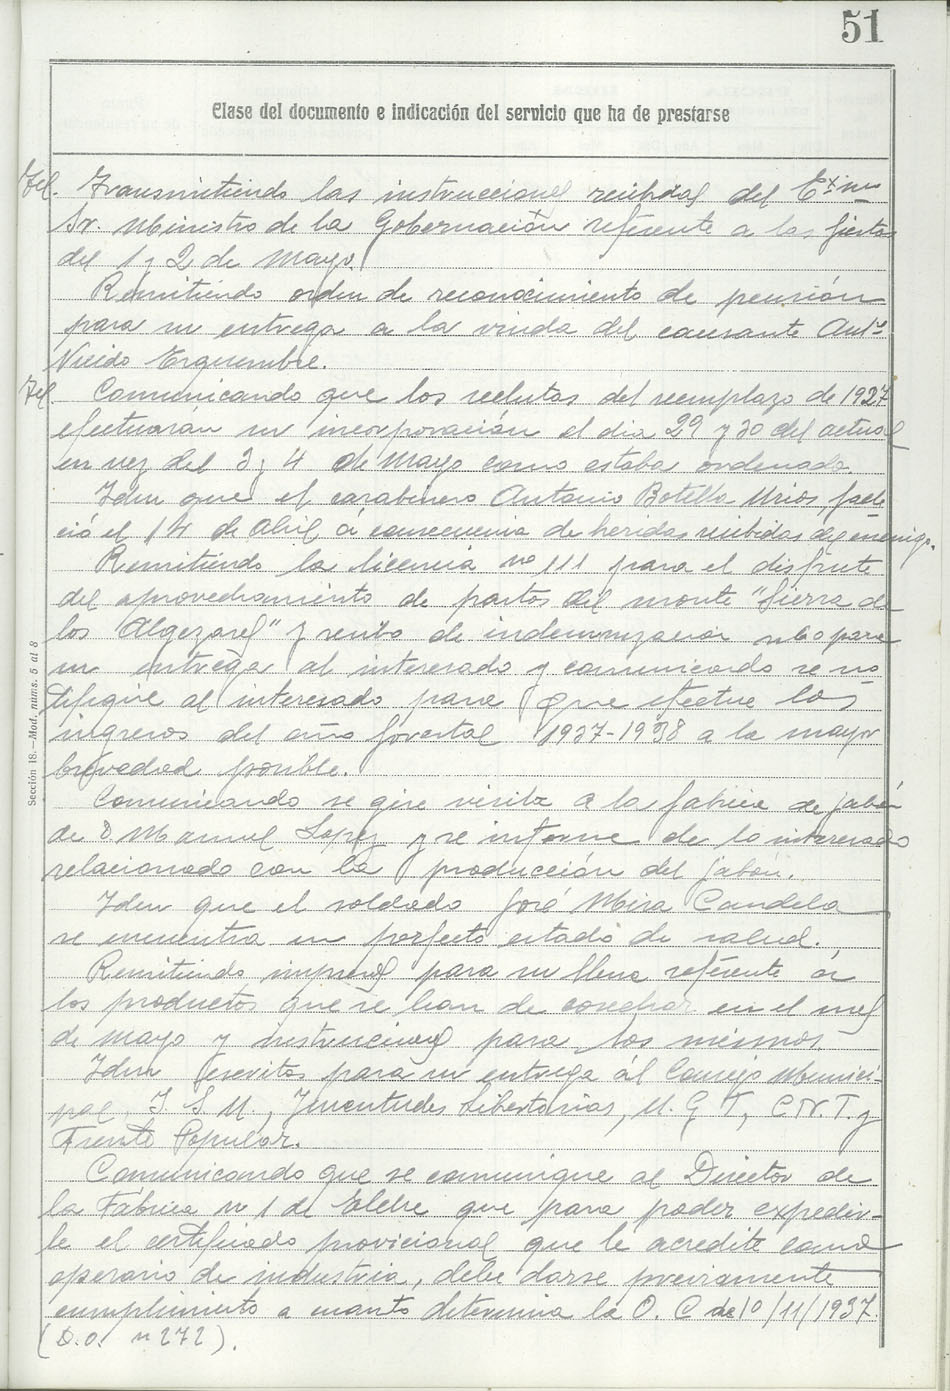 51
Clase del documento e indicación del servicio que ha de prestarse
Tel. Transmitiendo las instrucciones recibidas del Exmo
Sr. Ministro de la Gobernación referente a las fiestas
del 1 y 2 de Mayo.
Remitiendo orden de reconocimiento de pensión
para su entrega a la viuda del causante Antº
Tel. Comunicando que los reclutas del reemplazo de 1927
efectuarán su incorporación el dia 29 y 30 del actual
en vez del 3 y 4 de Mayo como estaba ordenado.
Idem que el carabinero Antonio Botella Urios, falle
ció el 14 de Abril á consecuencia de heridas recibidas del enemigo.
Remitiendo la licencia nº 111 para el disfrute
del aprovechamiento de pastos del monte "Sierra de
los Algezares" y recibo de indemnización para
su entrega al interesado y comunicando se no
tifique al interesado para que efectue los
ingresos del año forestal 1937-1938 a la mayor
brevedad posible.
Sección 18.—Mod. núms. 5 al 8
Comunicando se gire visita a la fabrica de jabón
de D. Manuel Lopez y se informe de lo interesado
relacionado con la producción del jabón.
Idem que el soldado José Mira Candela
se encuentra en perfecto estado de salud.
Remitiendo impresos para su llena referente á
los productos que se han de cosechar en el mes
de mayo y instrucciones para los mismos
Idem escritos para su entrega al Consejo Munici-
pal, J S U., Juventudes Libertarias, U. G T, C. N. T. y
Frente Popular.
Comunicando que se comunique al Director de
la Fabrica nº 1 de Elche que para poder expedir-
le el certificado provicional que le acredite como
operario de industria, debe darse previamente
cumplimiento a cuanto determina la O. C de 10/11/1937.
(D.O. nº 272).